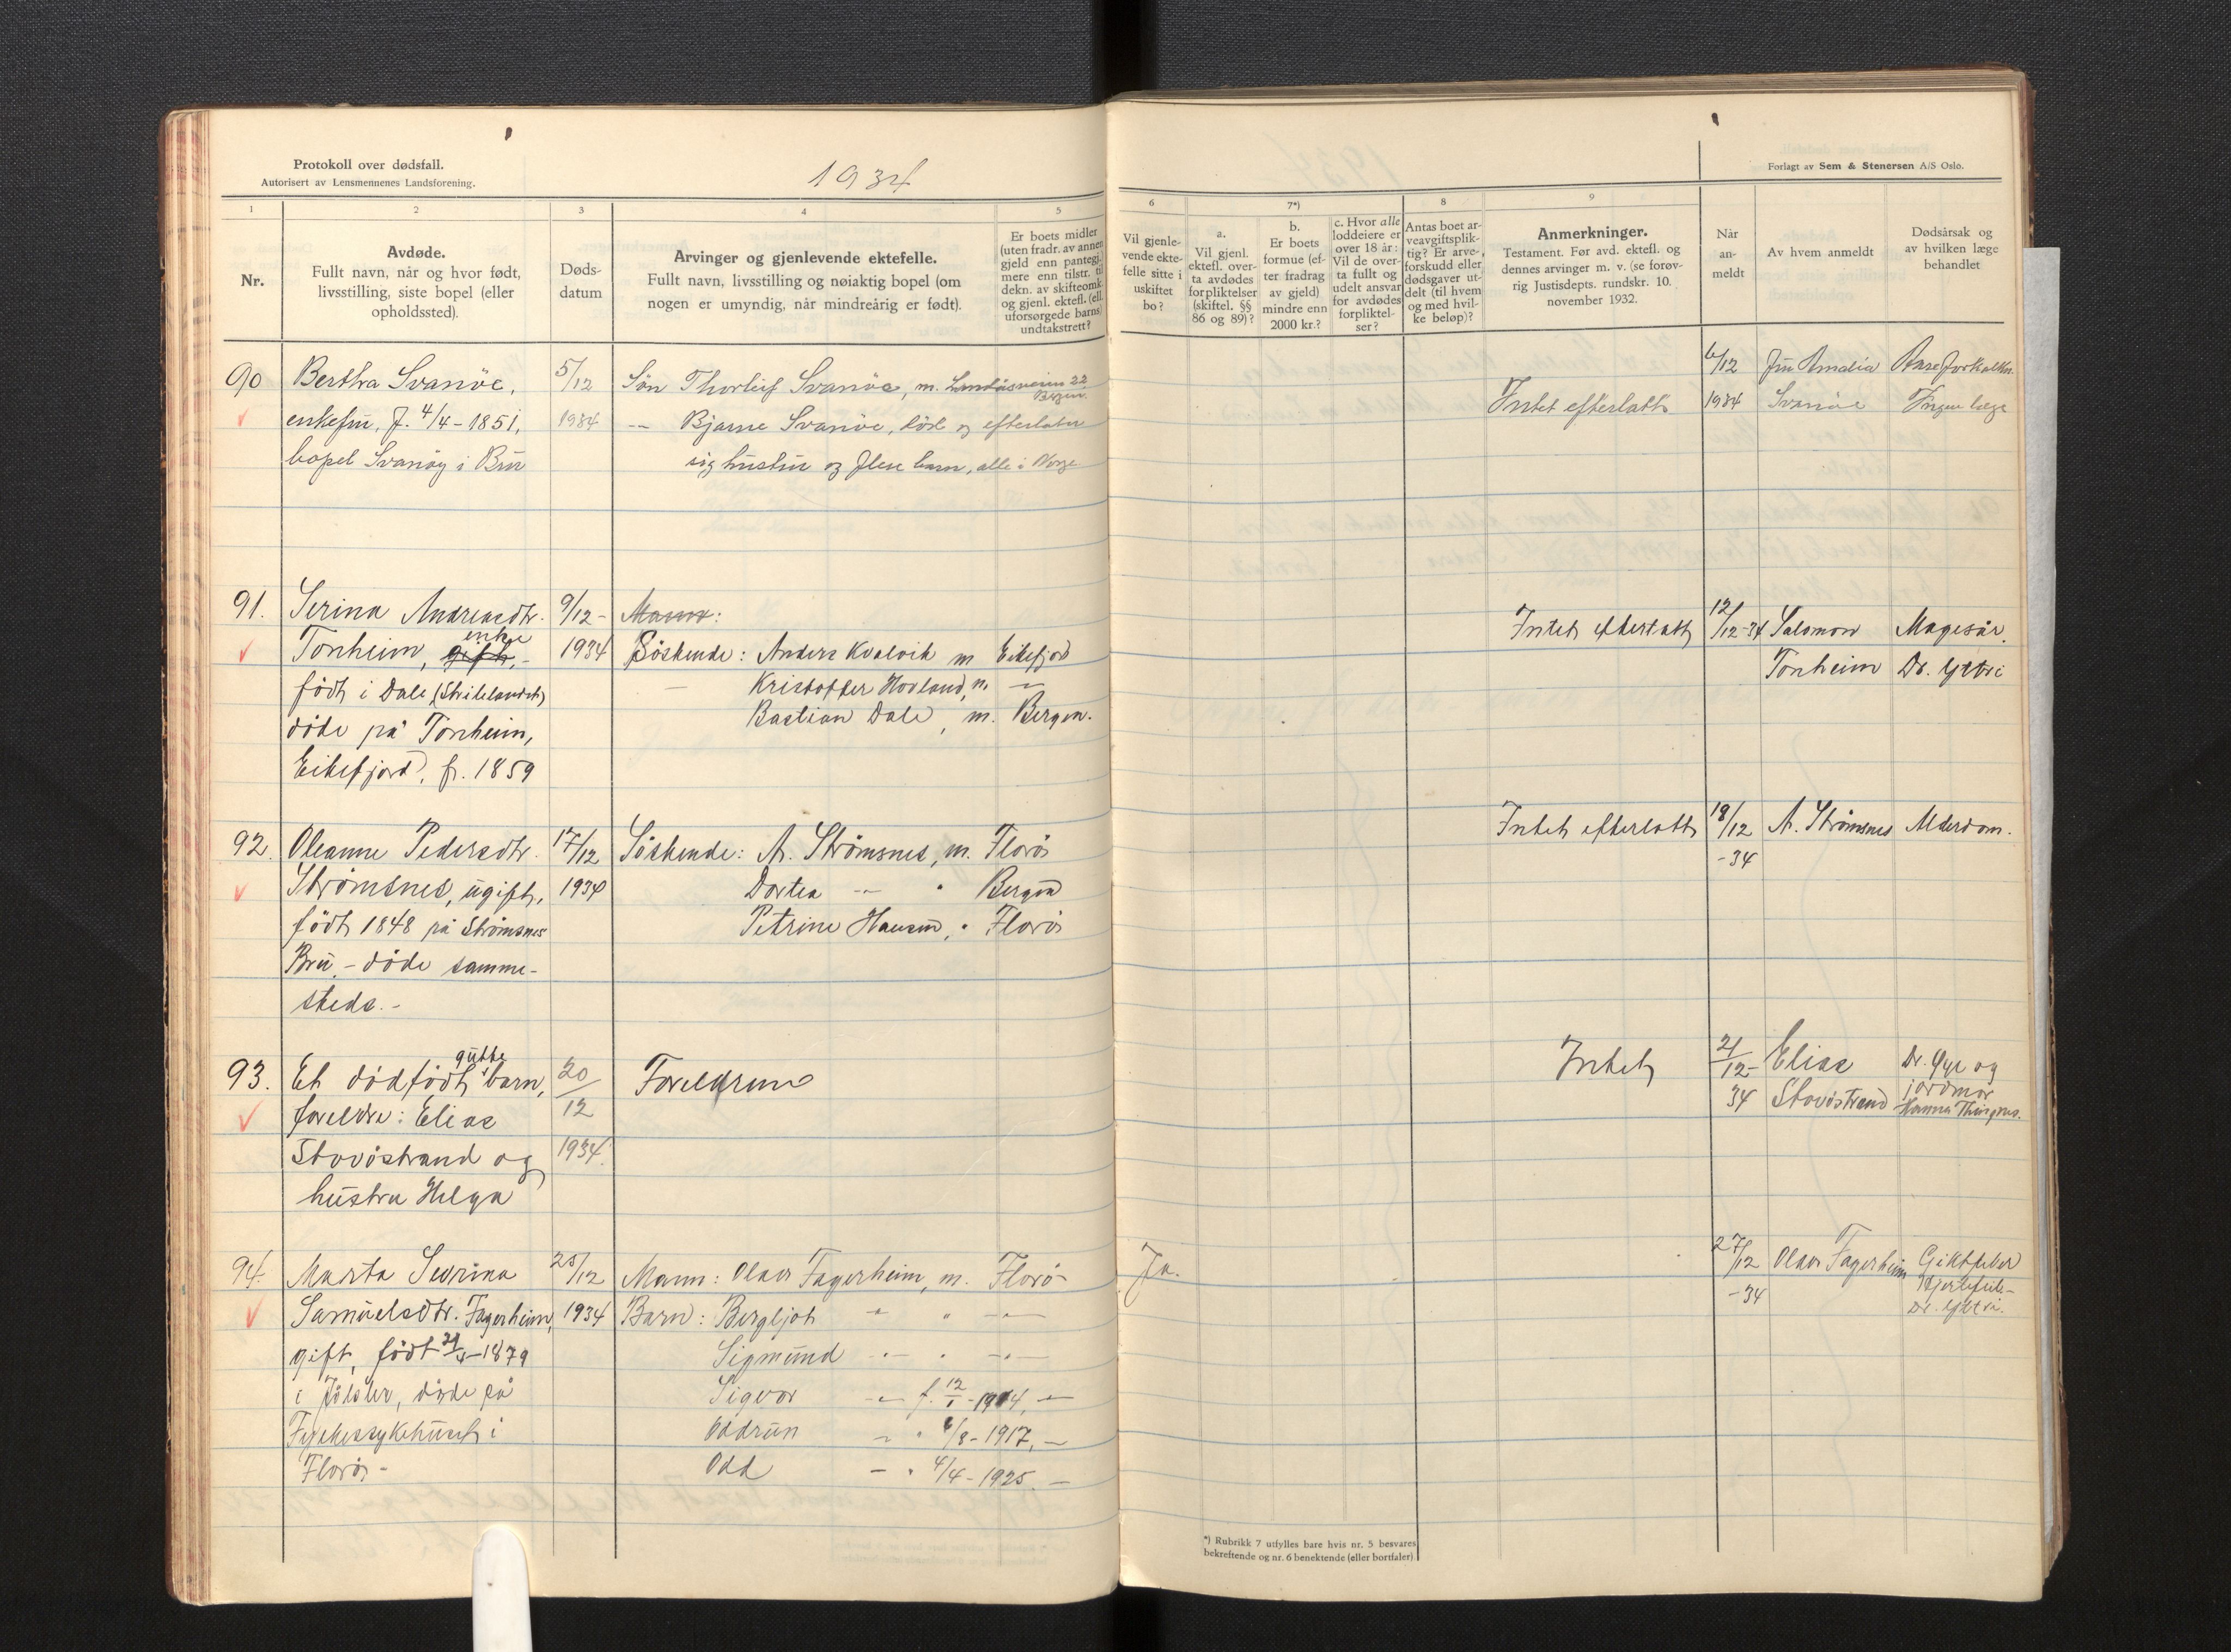 Protokoll over dødsfall.
Autorisert av Lensmennenes Landsforening.
1934
1
2
3
4
5
Nr.
Avdøde.
Fullt navn, når og hvor født,
livsstilling, siste bopel (eller
opholdssted).
Døds-
datum
Arvinger og gjenlevende ektefelle.
Fullt navn, livsstilling og nøiaktig bopel (om
nogen er umyndig, når mindreårig er født).
Er boets midler
(uten fradr. av annen
gjeld enn pantegj.)
mere enn tilstr. til
dekn. av skifteomk.
og gjenl. ektefl. (ell.
uforsørgede barns)
undtakstrett?
90
Bertha Svanöe,
enkefru, f. 4/4-1851,
bopel Svanöy i Bru
5/12
1934
Sön Thorleif Svanöe, m. Landåsveien 22
Bergen.
-- Bjarne Svanöe, död og efterlater
sig hustru og flere barn, alle i Norge
91.
Serina Andreasdtr.
Tonheim, gift, enke
födt i Dale
döde på Tonheim,
Eikefjord, f. 1859
9/12-
1934
Mann:
Söskende: Anders Kvalvik m Eikefjord
— Kristoffer Hovland, m. —
Bastian Dale, m. Bergen.
92.
Oleanne Pedersdtr.
Strömsnes, ugift,
födt 1848 på Strömsnes
Bru, - döde samme-
steds. -
17/12
1934
Söskende: A. Strömsnes, m. Florö
Dortea -- " Bergen
Petrine Hansen, " Florö
93.
Et dödfödt gutte barn,
foreldre: Elias
Stovöstrand og
hustru Helga
20/12
1934.
Foreldrene
94.
Marta Severina
Samuelsdtr. Fagerheim,
gift, födt 21/4-1879
i Jölster, döde på
Fylkessykehuset i
Florö -
25/12
1934
Mann: Olav Fagerheim, m. Florö
Barn: Bergljot " " -"-
Sigmund -"- " -"-
Sigvor -"- f. 12/1-1914, -"-
Oddrun " " /8-1917, -
Odd - " 4/4-1925. -
6
7*)
8
9
Forlagt av Sem & Stenersen A/S Oslo.
Vil gjenle-
vende ekte-
felle sitte i
uskiftet
bo?
a.
Vil gjenl.
ektefl. over-
ta avdødes
forpliktelser
(skiftel. §§
86 og 89)?
b.
Er boets
formue (ef-
ter fradrag
av gjeld)
mindre enn
2000 kr.?
c. Hvor alle
loddeiere er
over 18 år:
Vil de over-
ta fullt og
udelt ansvar
for avdødes
forpliktel-
ser?
Antas boet ar-
veavgiftsplik-
tig? Er arve-
forskudd eller
dødsgaver ut-
delt (til hvem
og med hvil-
ke beløp)?
Anmerkninger.
Testament. Før avd. ektefl. og
dennes arvinger m. v. (se forøv-
rig Justisdepts. rundskr. 10.
november 1932.
Når
an-
meldt
Av hvem anmeldt
Dødsårsak og
av hvilken læge
behandlet
Intet efterlatt
6/12
1934
Fru Amalia
Svanöe
Åreforkalkn.
Ingen læge
Intet efterlatt
12/12-34
Salomon
Tonheim
Magesår.
Dr. Yttri
Intet efterlatt
18/12
-34
A. Strömsnes
Alderdom.
Intet
21/12-
34
Elias
Stovöstrand
Dr. og
jordmor
Hanna
Ja.
27/12
-34
Olav Fagerheim
Giktfeber
Hjertefeil-
Dr. Yttri.
*) Rubrikk 7 utfylles bare hvis nr. 5 besvares
bekreftende og nr. 6 benektende (eller bortfaler).